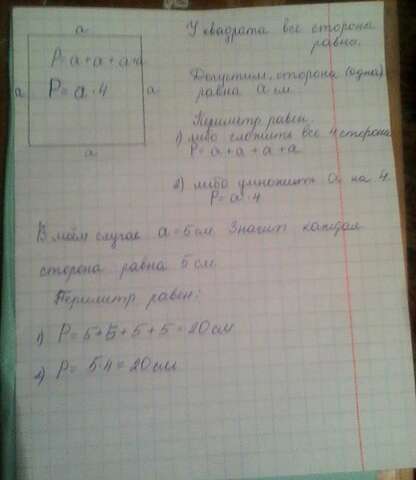 a
P = a + a + a + a
P = a · 4
a
a
a
У квадрата все стороны
равны.
Допустим, сторона (одна)
равна a см.
Периметр равен:
1) либо сложить все 4 стороны
P = a + a + a + a
2) либо умножить a на 4
P = a · 4
В моём случае a = 5 см. Значит каждая
сторона равна 5 см
Периметр равен:
1) P = 5 + 5 + 5 + 5 = 20 см
2) P = 5 · 4 = 20 см